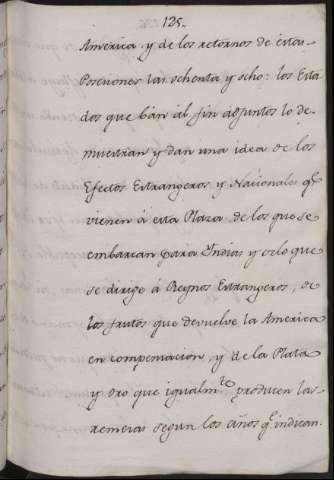 125.
America, y de los retornos de estas
Posesiones las ochenta y ocho: los Esta
dos que bán al fin adjuntos lo de
muestran y dan una idea de los
Efectos Estrangeros y Nacionales qe
vienen á esta Plaza de los que se
embarcan para Yndias y de lo que
se dirige á Reynos Estrangeros, de
los frutos que devuelve la America
en compensacion, y de la Plata
y oro que igualmte producen las
remesas segun los años qe indican.